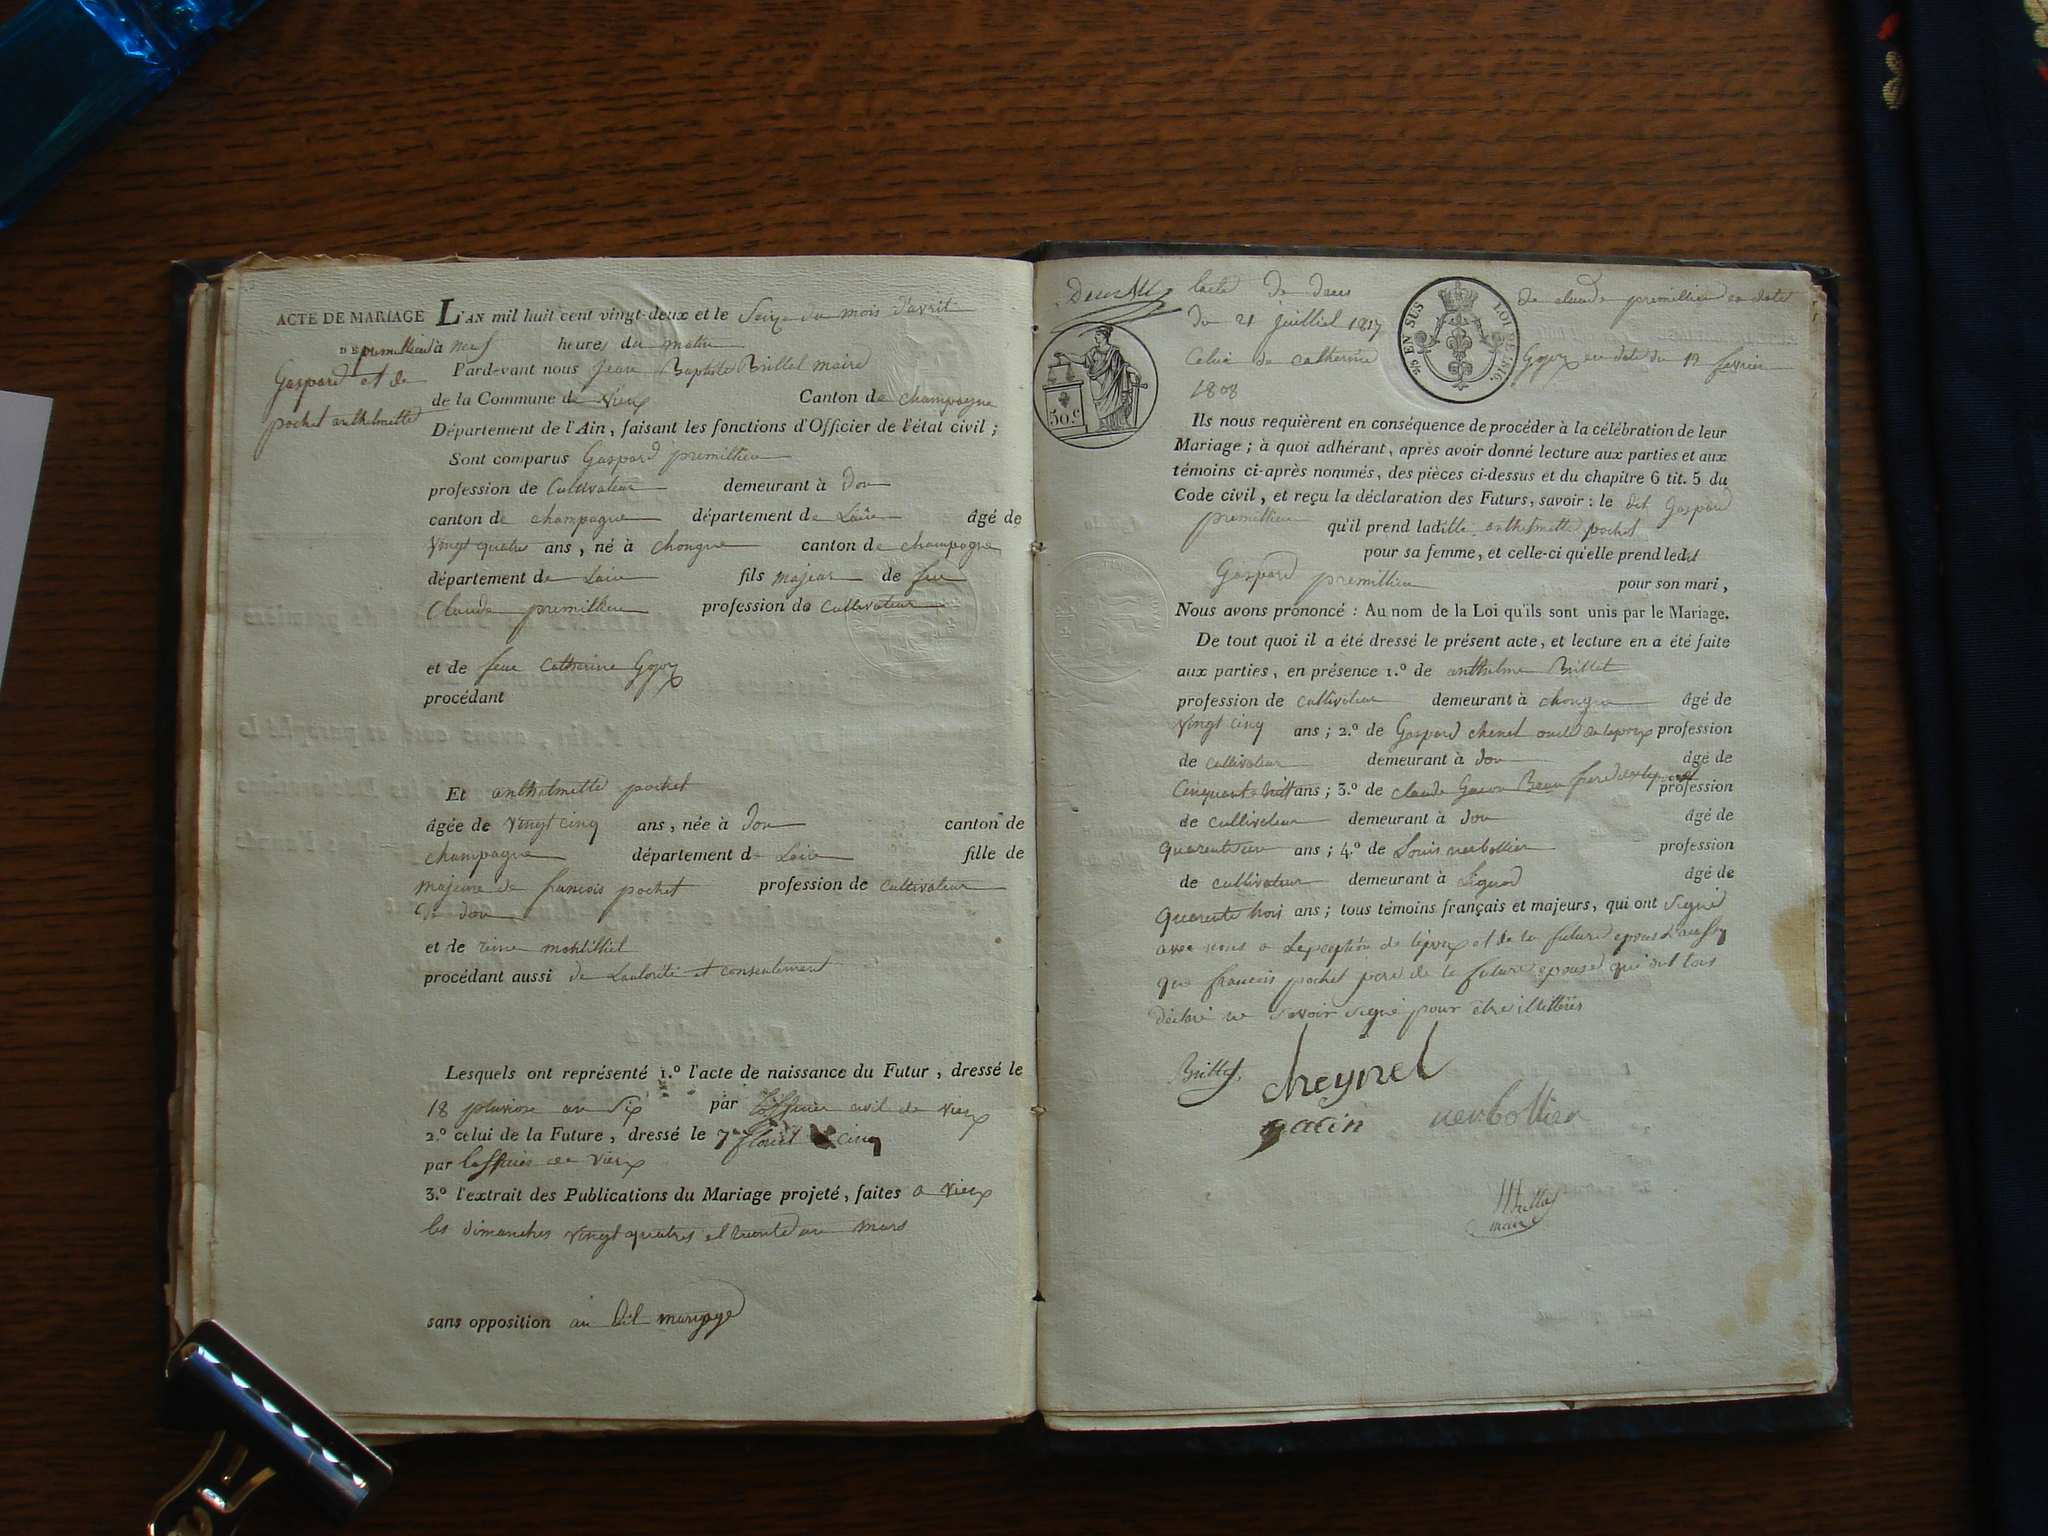 ACTE DE MARIAGE
DE premillieu
Gaspard et de
pochet anthelmette
L'AN mil huit cent vingt-deux et le Seize du mois d'avril
à neuf heures du matin
Pard-vant nous Jean Baptiste Brillet maire
de la Commune de vieux Canton de champagne
Département de l'Ain, faisant les fonctions d'Officier de l'état civil ;
Sont comparus Gaspard premillieu
profession de Cultivateur demeurant à don
canton de champagne département de Lain âgé de
Vingt quatre ans, né à chongne canton de champagne
département de Lain fils majeur de feu
Claude premillieu profession de cultivateur
et de feue Catherine Gojoz
procédant
Et anthelmette pochet
âgée de Vingt cinq ans, née à don canton de
champagne département d Lain fille de
majeure de francois pochet profession de cultivateur
de don
et de reine montilliet
procédant aussi de Lautorité et consentement
Lesquels ont représenté 1.º l'acte de naissance du Futur, dressé le
18 pluviose an Six par lofficier civil de vieux
2.º celui de la Future, dressé le 7 floreal cinq
par lofficier de vieux
3.º l'extrait des Publications du Mariage projeté, faites a vieux
les dimanches vingt quatres et trente un mars
sans opposition au dit mariage
lacte de deces de claude premillieu en date
du 21 juilliet 1817
Celui de catherine Gojoz en date du 12 fevrier
1808
25 c. EN SUS LOI DE 1816.
50.c
Ils nous requièrent en conséquence de procéder à la célébration de leur
Mariage ; à quoi adhérant, après avoir donné lecture aux parties et aux
témoins ci-après nommés, des pièces ci-dessus et du chapitre 6 tit. 5 du
Code civil, et reçu la déclaration des Futurs, savoir : le dit Gaspard
premillieu qu'il prend ladite anthelmette pochet
pour sa femme, et celle-ci qu'elle prend ledit
Gaspard premillieu pour son mari,
Nous avons prononcé : Au nom de la Loi qu'ils sont unis par le Mariage.
De tout quoi il a été dressé le présent acte, et lecture en a été faite
aux parties, en présence 1.º de anthelme Brillet
profession de cultivateur demeurant à chongne âgé de
Vingt cinq ans ; 2.º de Gaspard chenel oncle de lepoux profession
de cultivateur demeurant à don âgé de
Cinquante huit ans ; 3.º de claude Guerin Beau frere de lepouse profession
de cultivateur demeurant à don âgé de
quarente un ans ; 4.º de Louis nerbollier profession
de cultivateur demeurant à Lignod âgé de
Quarente trois ans ; tous témoins français et majeurs, qui ont signé
avec nous a Lexception de lépoux et de la future epouse aussy
que francois pochet pere de la future epouse qui ont tous
declaré ne savoir signé pour être illittéres
Brillet, cheynel
garin nerbollier
Brillet
maire